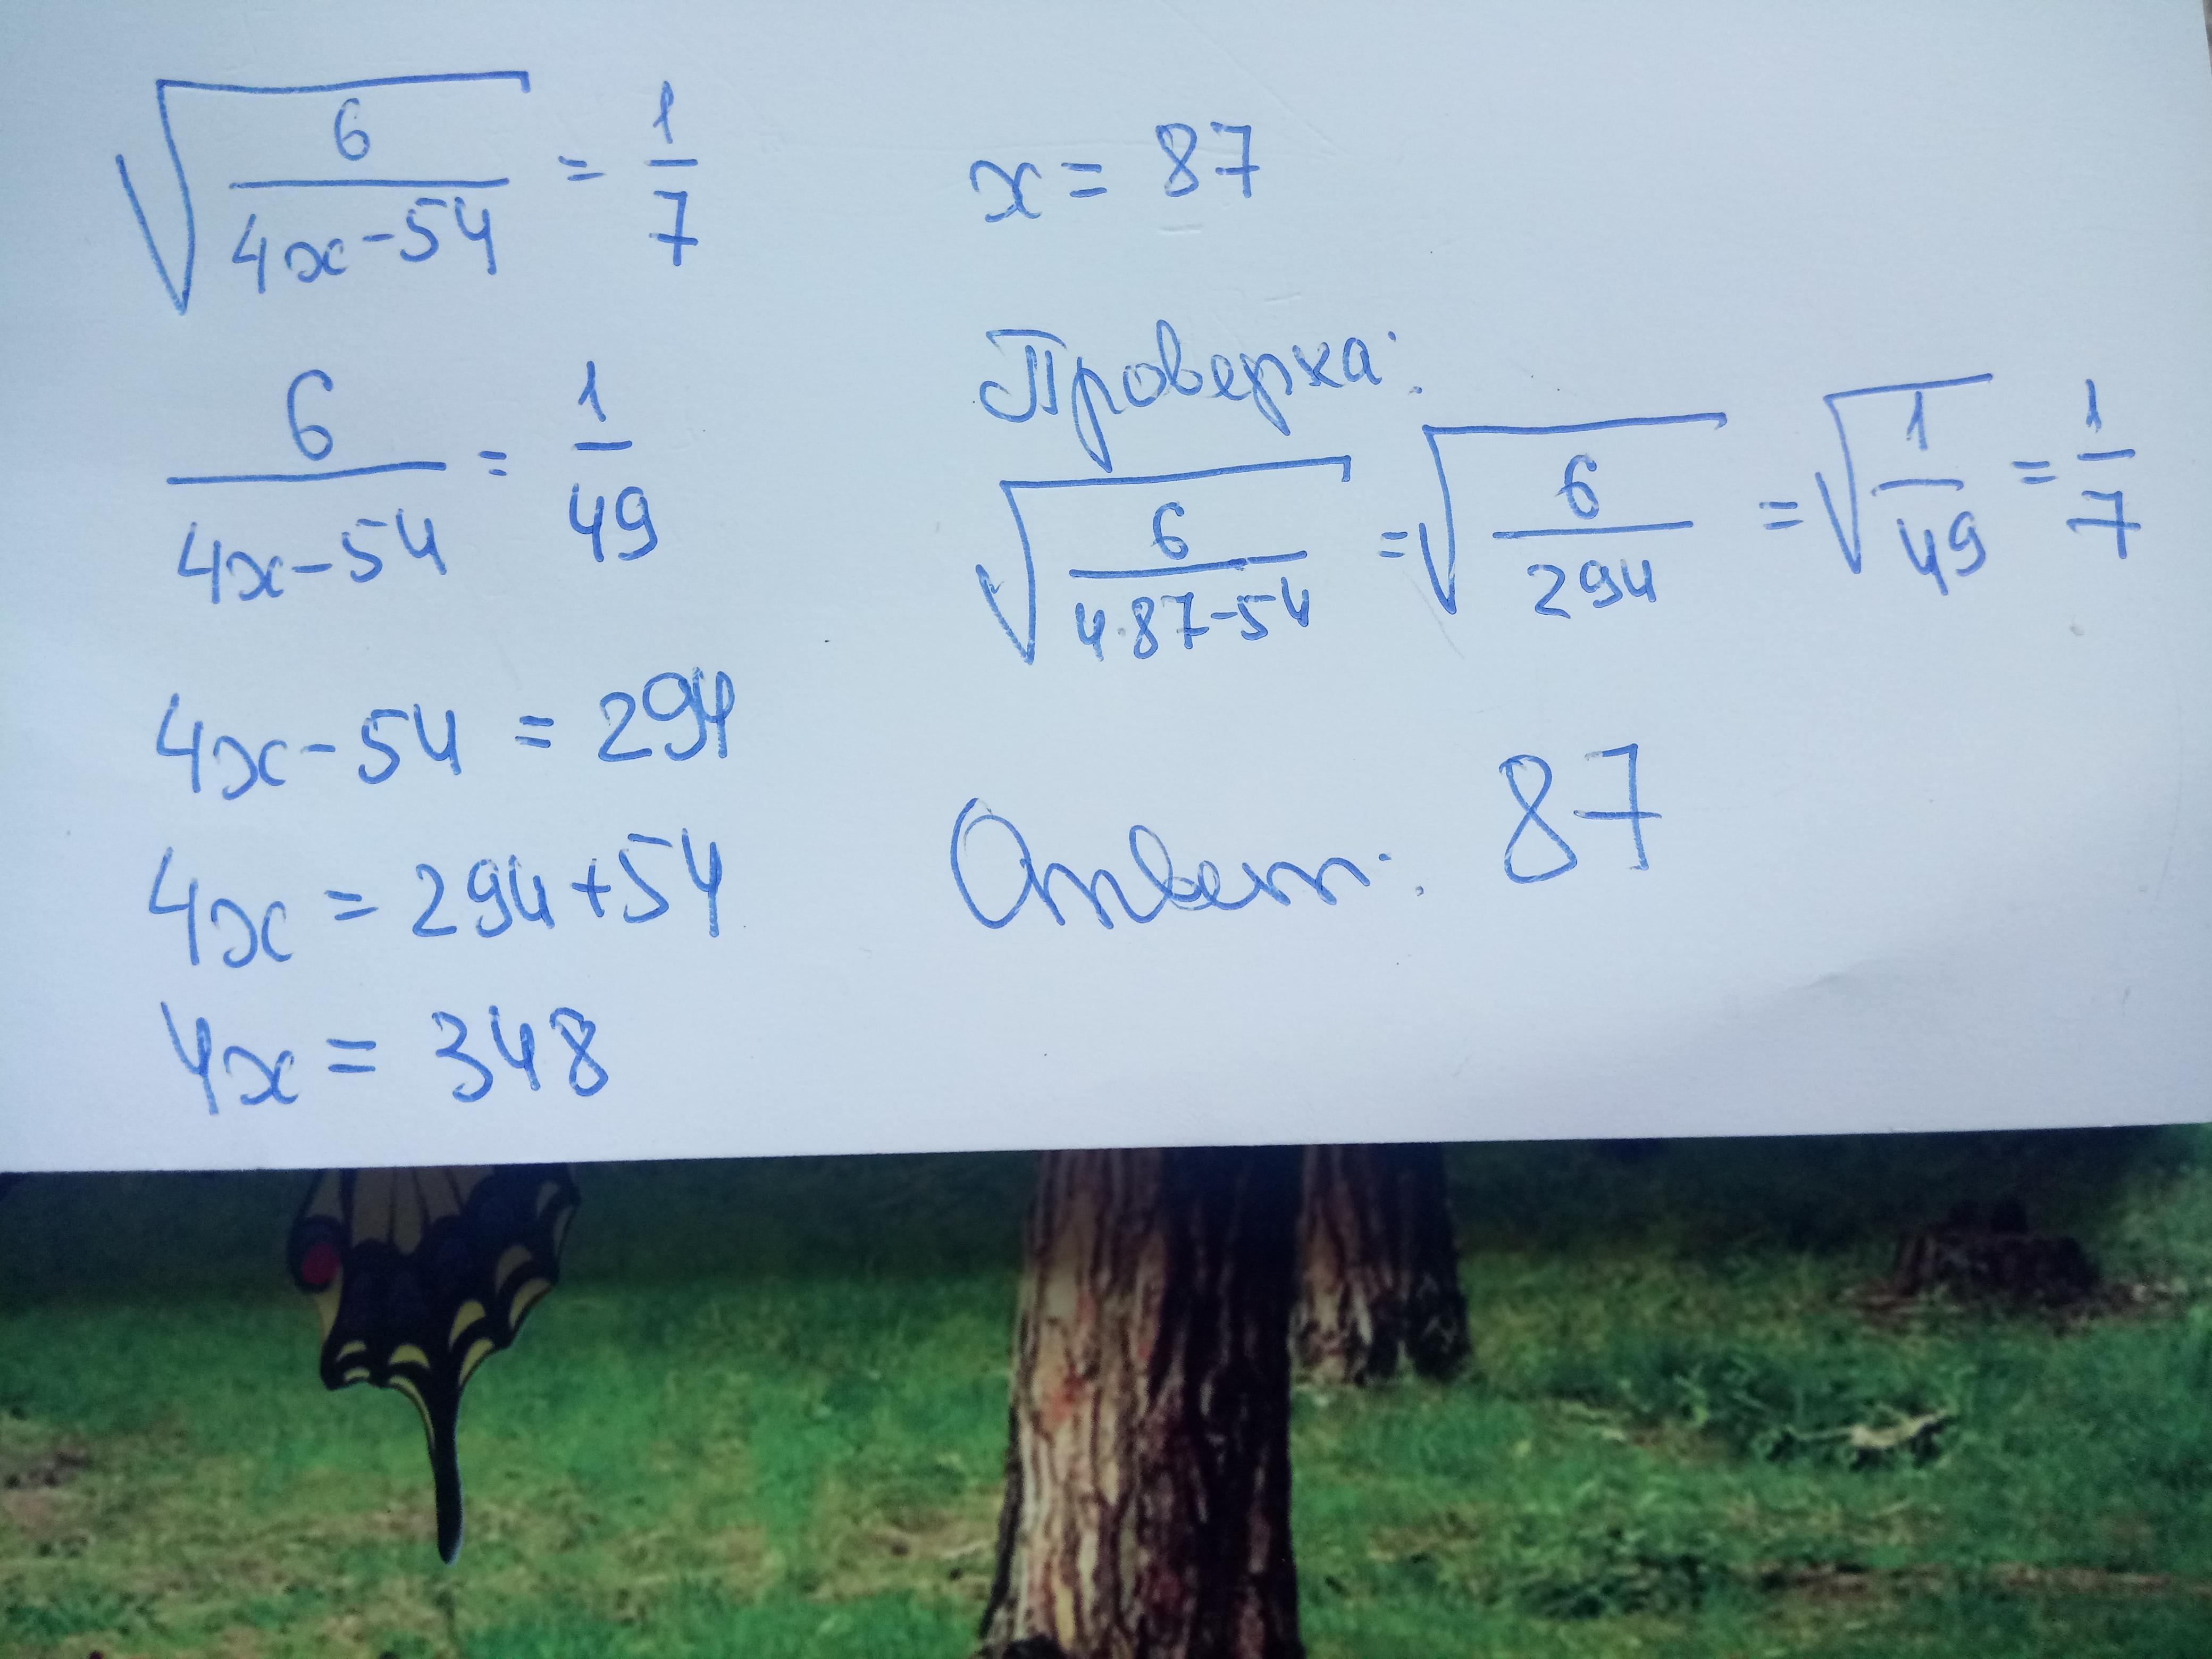 √(6/(4x-54)) = 1/7
6/(4x-54) = 1/49
4x-54 = 294
4x = 294+54
4x = 348
x = 87
Проверка:
√(6/(4·87-54)) = √(6/294) = √(1/49) = 1/7
Ответ: 87